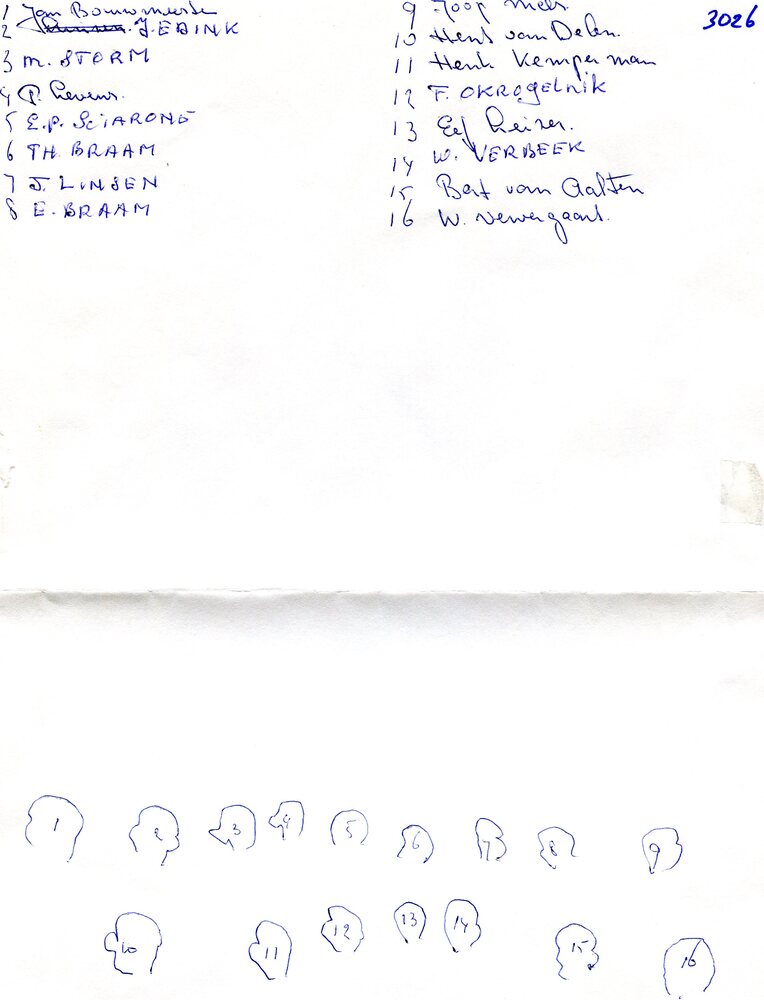 1 Jan Bouwmeester
2 J. EBINK
3 M. STORM
4 P. Lievens.
5 E.P. SCIARONE
6 TH. BRAAM
7 J. LINSEN
8 E. BRAAM
9 Joop Mels.
10 Henk van Delen.
11 Henk Kemperman
12 F. OKROGELNIK
13 Eef Leizer.
14 W. VERBEEK
15 Bert van Aalten
16 W.
3026
1 2 3 4 5 6 7 8 9
10 11 12 13 14 15 16